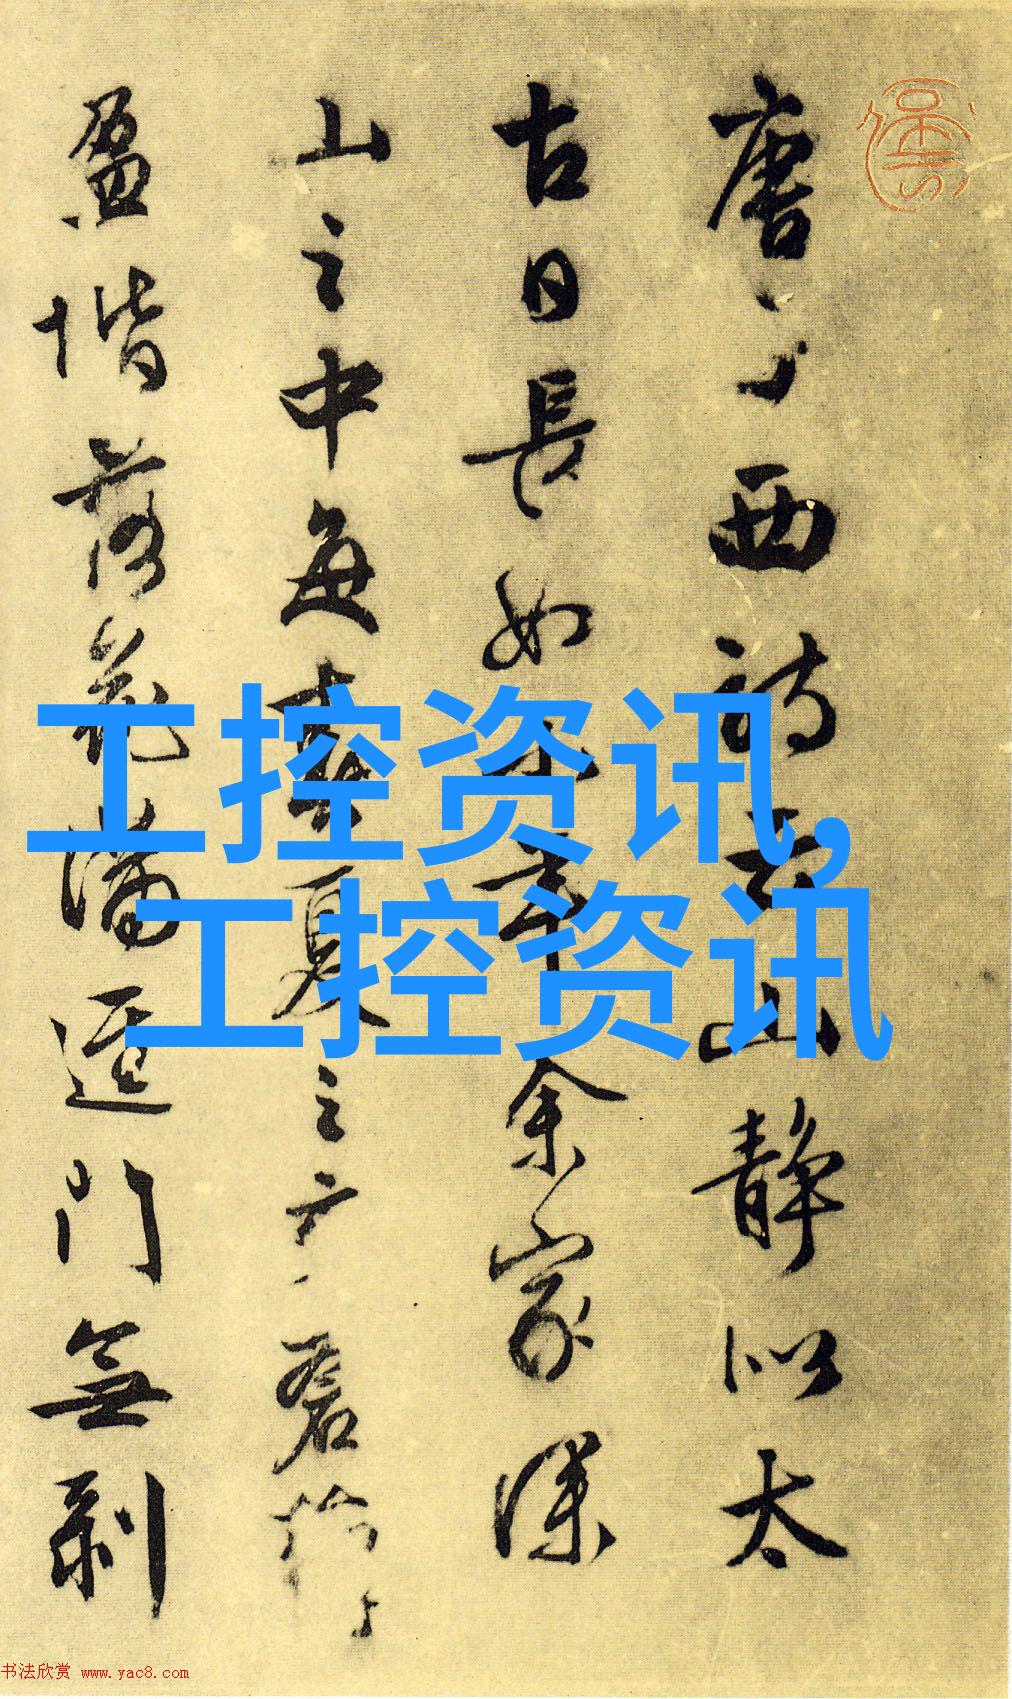 唐子西詩云山静似太
古日長如小年余家深
山之中每春夏之交蒼蘚
盈階落花滿逕門無剥
工控资讯,
工控资讯
书法欣赏 www.yac8.com